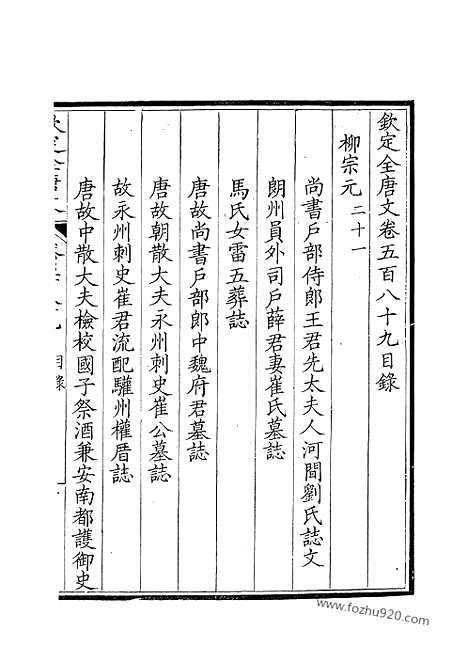 欽定全唐文卷五百八十九目錄
柳宗元 二十一
尚書戶部侍郎王君先太夫人河間劉氏誌文
朗州員外司戶薛君妻崔氏墓誌
馬氏女雷五葬誌
唐故尚書戶部郎中魏府君墓誌
唐故朝散大夫永州刺史崔公墓誌
故永州刺史崔君流配驩州權厝誌
唐故中散大夫檢校國子祭酒兼安南都護御史
目錄 一
www.fozhu920.com